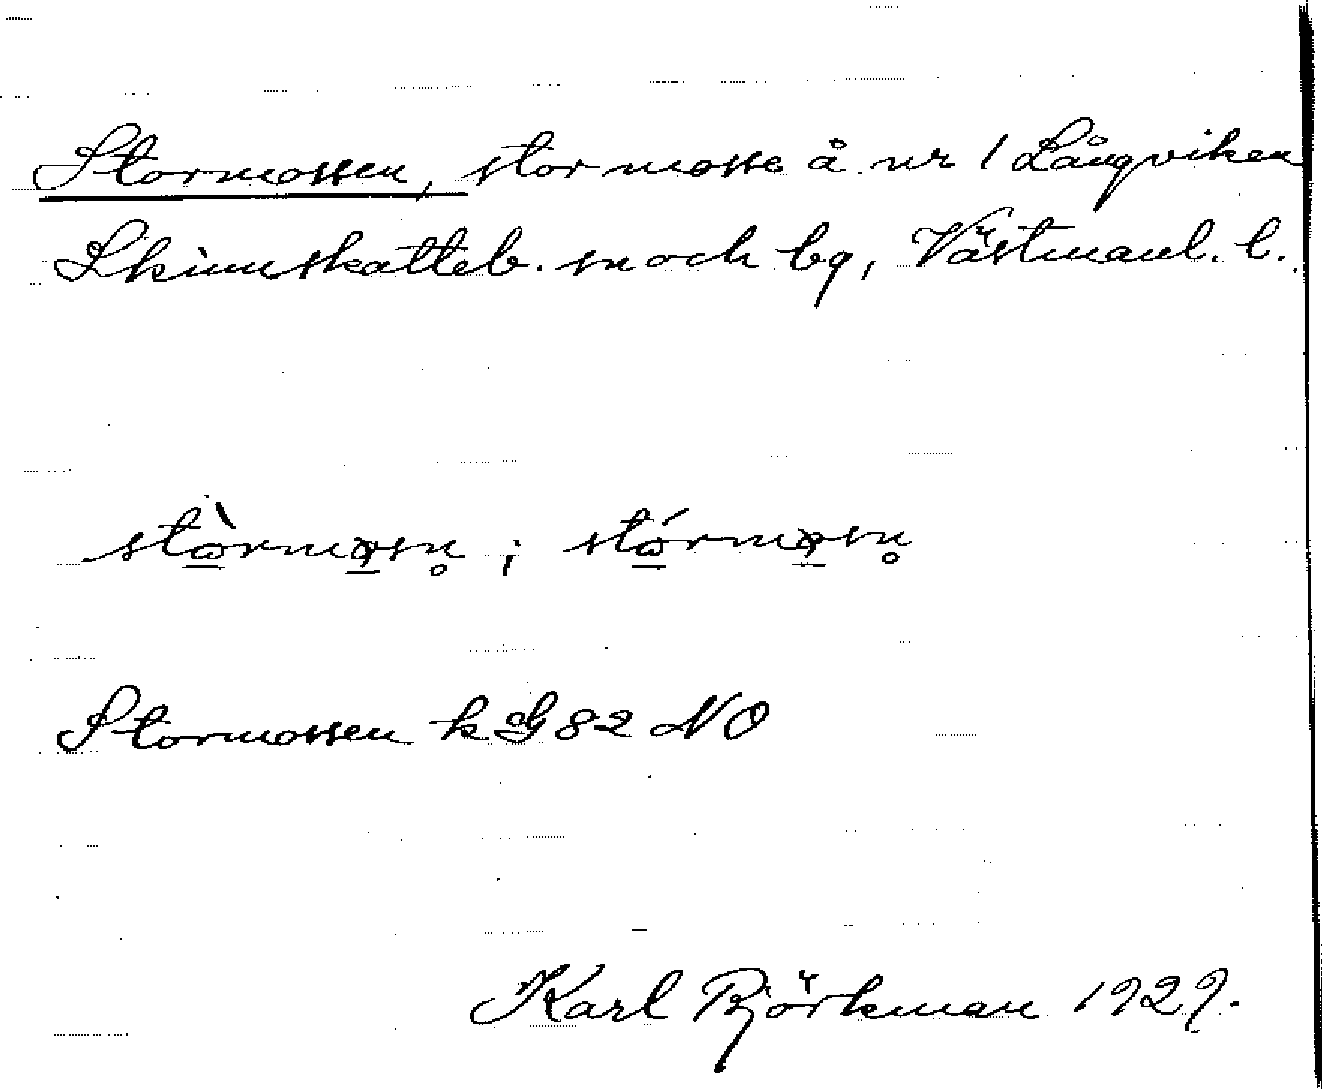 Stormossen, stor mosse å nr 1 Långviken
Skinnskatteb. sn och bg, Västmanl. l.
stòrmosn̥ ; stórmosn̥
Stormossen k G 82 NO
Karl Björkman 1929.